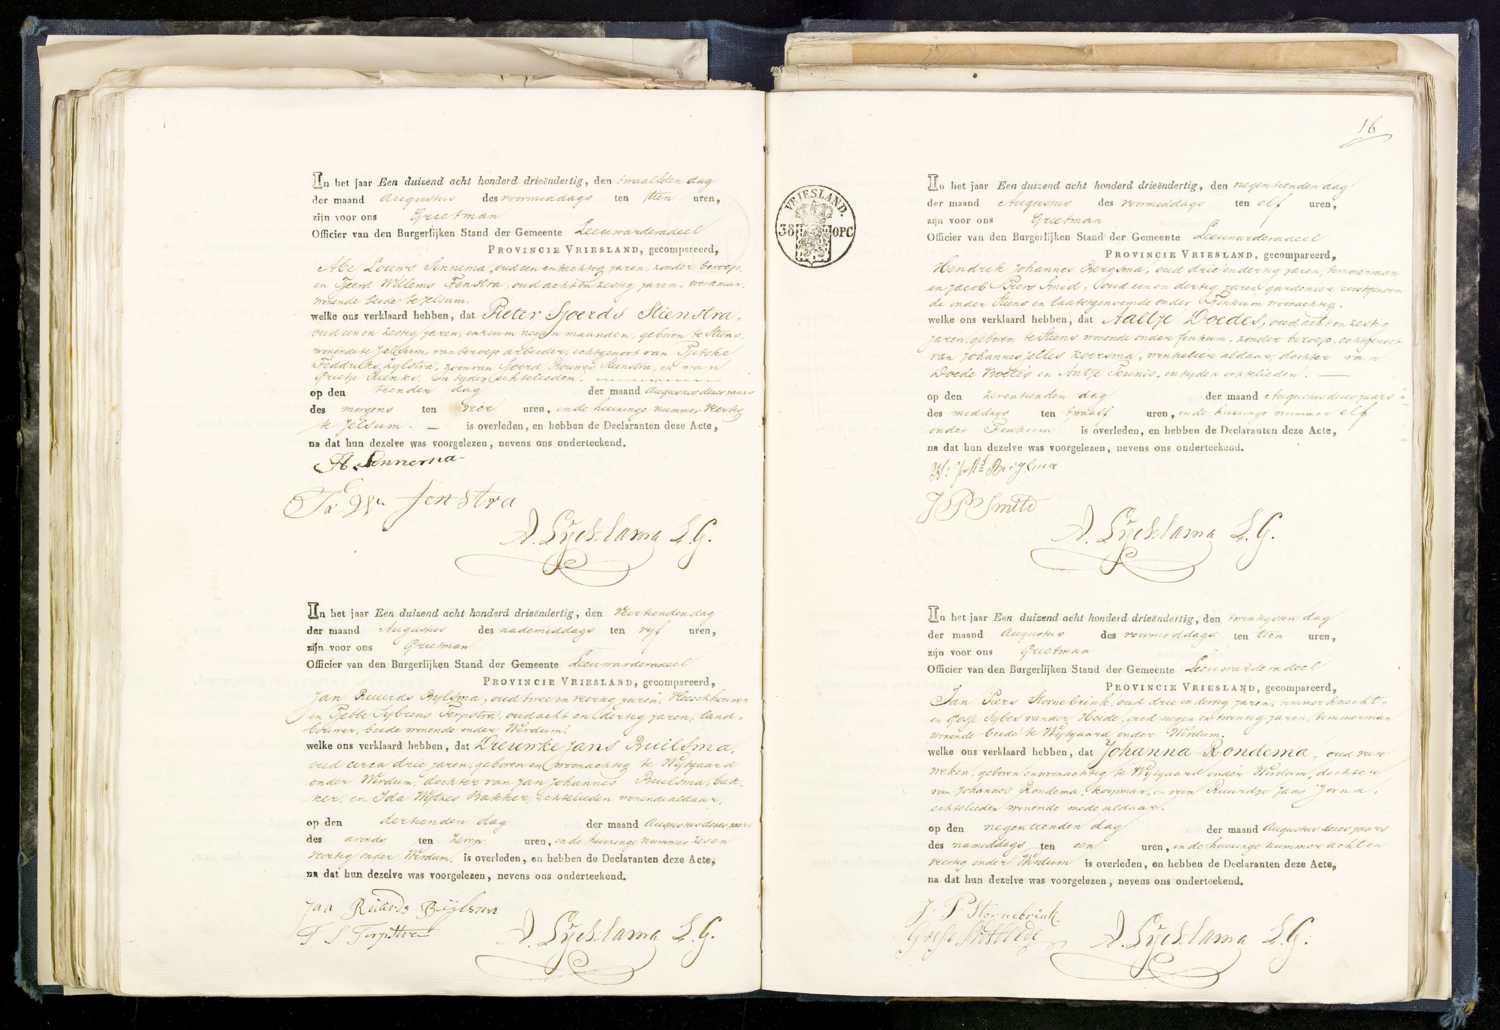 In het jaar Een duizend acht honderd drieëndertig, den twaalfden dag
der maand Augustus des voormiddags ten tien uren,
zijn voor ons Grietman
Officier van den Burgerlijken Stand der Gemeente Leeuwarderadeel
PROVINCIE VRIESLAND, gecompareerd,
Abe Louws Sinnema, oud een en tachtig jaren, zonder beroep,
en Geert Willems Fenstra, oud acht en zestig jaren,
woonende beide te Jelsum.
welke ons verklaard hebben, dat Pieter Sjoerds Steenstra,
oud een en zestig jaren, en ruim negen maanden, geboren te Stiens,
woonende te Jelsum, van beroep arbeider, echtgenoot van Pietske
Feddriks Zylstra, zoon van Sjoerd Douwes Steenstra, en van
Grietje Rienks, in leven echtelieden.
op den tienden dag der maand Augustus dezes jaars
des morgens ten vier uren, in de huizinge nummer veertig
te Jelsum. — is overleden, en hebben de Declaranten deze Acte,
na dat hun dezelve was voorgelezen, nevens ons onderteekend.
A L Sinnema
W. Fenstra
A. Lycklama L.G.
In het jaar Een duizend acht honderd drieëndertig, den veertienden dag
der maand Augustus des nademiddags ten vijf uren,
zijn voor ons Grietman
Officier van den Burgerlijken Stand der Gemeente Leeuwarderadeel
PROVINCIE VRIESLAND, gecompareerd,
Jan Ruurds Bylsma, oud twee en veertig jaren, vleeschhouwer
en Fokke Sybrens Terpstra, oud acht en dertig jaren, land-
bouwer, beide woonende onder Wirdum.
welke ons verklaard hebben, dat Lieuwke Jans Builsma,
oud circa drie jaren, geboren en woonachtig te Wytgaard
onder Wirdum, dochter van Jan Johannes Builsma, bak-
ker, en Ida Wytzes Bakker, echtelieden woonende aldaar.
op den dertienden dag der maand Augustus dezes jaars
des avonds ten uren, in de huizinge nummer zeven
veertig onder Wirdum. is overleden, en hebben de Declaranten deze Acte,
na dat hun dezelve was voorgelezen, nevens ons onderteekend.
Jan Ruurds Bijlsma
F S Terpstra
A. Lycklama L.G.
VRIESLAND.
38 OPC
16
In het jaar Een duizend acht honderd drieëndertig, den negentienden dag
der maand Augustus des voormiddags ten elf uren,
zijn voor ons Grietman
Officier van den Burgerlijken Stand der Gemeente Leeuwarderadeel
PROVINCIE VRIESLAND, gecompareerd,
Hendrik Johannes Bergsma, oud drie en dertig jaren, timmerman
en Jacob Piers Smed, oud een en dertig jaren gardenier eerstgenoem
de onder Stiens en laatstgenoemde onder Finkum woonachtig.
welke ons verklaard hebben, dat Aaltje Doedes, oud acht en zestig
jaren, geboren te Stiens woonende onder Finkum, zonder beroep, echtgenoot
van Johannes Jelles Zeersma, winkelier aldaar, dochter van
Doede Nottes en Antje Teunis, in leven echtelieden. —
op den zeventienden dag der maand Augustus dezes jaars
des middags ten twaalf uren, in de huizinge nummer elf
onder Finkum is overleden, en hebben de Declaranten deze Acte,
na dat hun dezelve was voorgelezen, nevens ons onderteekend.
J P Smids
A. Lycklama L.G.
In het jaar Een duizend acht honderd drieëndertig, den twintigsten dag
der maand Augustus des voormiddags ten tien uren,
zijn voor ons Grietman
Officier van den Burgerlijken Stand der Gemeente Leeuwarderadeel
PROVINCIE VRIESLAND, gecompareerd,
Jan Piers Hornebrink, oud drie en dertig jaren,
en Gosse Sybes van der Heide, oud negen en twintig jaren, timmerman
woonende beide te Wytgaard onder Wirdum.
welke ons verklaard hebben, dat Johanna Rondema, oud vier
weken, geboren en woonachtig te Wytgaard onder Wirdum, dochter
van Johannes Rondema, koopman, en van Ruurdje Jans Jorna,
echtelieden woonende mede aldaar.
op den negentienden dag der maand Augustus dezes jaars
des namiddags ten een uren, in de huizinge nummer acht en
veertig onder Wirdum is overleden, en hebben de Declaranten deze Acte,
na dat hun dezelve was voorgelezen, nevens ons onderteekend.
J P Hornebrink
A. Lycklama L.G.